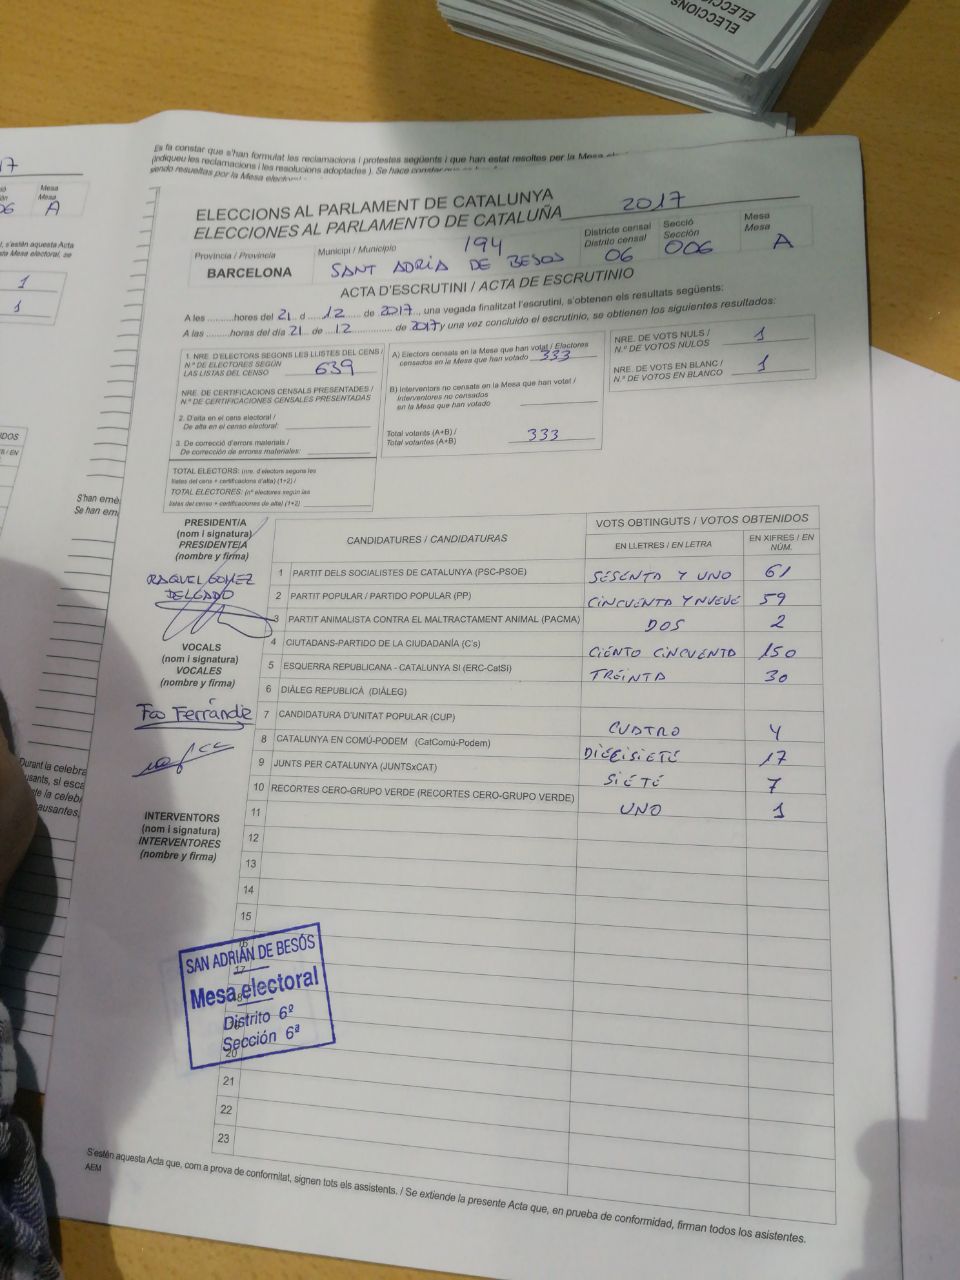 ELECCIONS
ELECCIONES
Es fa constar que s'han formulat les reclamacions i protestes següents i que han estat resoltes per la Mesa
(indiqueu les reclamacions i les resolucions adoptades ). Se hace constar que
sendo resueltas por la Mesa
17
Mesa
Mesa
06 A
s'estén aquesta Acta
Mesa electoral, se
1
1
ELECCIONS AL PARLAMENT DE CATALUNYA
ELECCIONES AL PARLAMENTO DE CATALUÑA 2017
Província / Provincia
BARCELONA
Municipi / Municipio 194
SANT ADRIA DE BESOS
Districte censal
Distrito censal
06
Secció
Sección
006
Mesa
Mesa
A
ACTA D'ESCRUTINI / ACTA DE ESCRUTINIO
A les ..........hores del 21 d ...12...... de 2017..., una vegada finalitzat l'escrutini, s'obtenen els resultats següents:
A las ..........horas del día 21 de ...12............... de 2017 y una vez concluido el escrutinio, se obtienen los siguientes resultados:
1. NRE. D'ELECTORS SEGONS LES LLISTES DEL CENS /
N.º DE ELECTORES SEGÚN
LAS LISTAS DEL CENSO 639
NRE. DE CERTIFICACIONS CENSALS PRESENTADES /
N.º DE CERTIFICACIONES CENSALES PRESENTADAS
2. D'alta en el cens electoral /
De alta en el censo electoral:
3. De correcció d'errors materials /
De corrección de errores materiales:
TOTAL ELECTORS: (nre. d'electors segons les
llistes del cens + certificacions d'alta) (1+2) /
TOTAL ELECTORES: (nº electores según las
listas del censo + certificaciones de alta) (1+2)
A) Electors censats en la Mesa que han votat / Electores
censados en la Mesa que han votado 333
B) Interventors no censats en la Mesa que han votat /
Interventores no censados
en la Mesa que han votado
Total votants (A+B) /
Total votantes (A+B) 333
NRE. DE VOTS NULS /
N.º DE VOTOS NULOS 1
NRE. DE VOTS EN BLANC /
N.º DE VOTOS EN BLANCO 1
PRESIDENT/A
(nom i signatura)
PRESIDENTE/A
(nombre y firma)
RAQUEL GOMEZ
DELGADO
VOCALS
(nom i signatura)
VOCALES
(nombre y firma)
INTERVENTORS
(nom i signatura)
INTERVENTORES
(nombre y firma)
CANDIDATURES / CANDIDATURAS
VOTS OBTINGUTS / VOTOS OBTENIDOS
EN LLETRES / EN LETRA
EN XIFRES / EN NÚM.
1 PARTIT DELS SOCIALISTES DE CATALUNYA (PSC-PSOE) SESENTA Y UNO 61
2 PARTIT POPULAR / PARTIDO POPULAR (PP) CINCUENTA Y NUEVE 59
3 PARTIT ANIMALISTA CONTRA EL MALTRACTAMENT ANIMAL (PACMA) DOS 2
4 CIUTADANS-PARTIDO DE LA CIUDADANÍA (C's) CIENTO CINCUENTA 150
5 ESQUERRA REPUBLICANA - CATALUNYA SI (ERC-CatSí) TREINTA 30
6 DIÀLEG REPUBLICÀ (DIÀLEG)
7 CANDIDATURA D'UNITAT POPULAR (CUP) CUATRO 4
8 CATALUNYA EN COMÚ-PODEM (CatComú-Podem) DIECISIETE 17
9 JUNTS PER CATALUNYA (JUNTSxCAT) SIETE 7
10 RECORTES CERO-GRUPO VERDE (RECORTES CERO-GRUPO VERDE) UNO 1
11
12
13
14
15
16
17
18
20
21
22
23
SAN ADRIÁN DE BESÓS
Mesa electoral
Distrito 6º
Sección 6ª
S'estén aquesta Acta que, com a prova de conformitat, signen tots els assistents. / Se extiende la presente Acta que, en prueba de conformidad, firman todos los asistentes.
AEM
S'han emès
Se han em
Durant la celebra